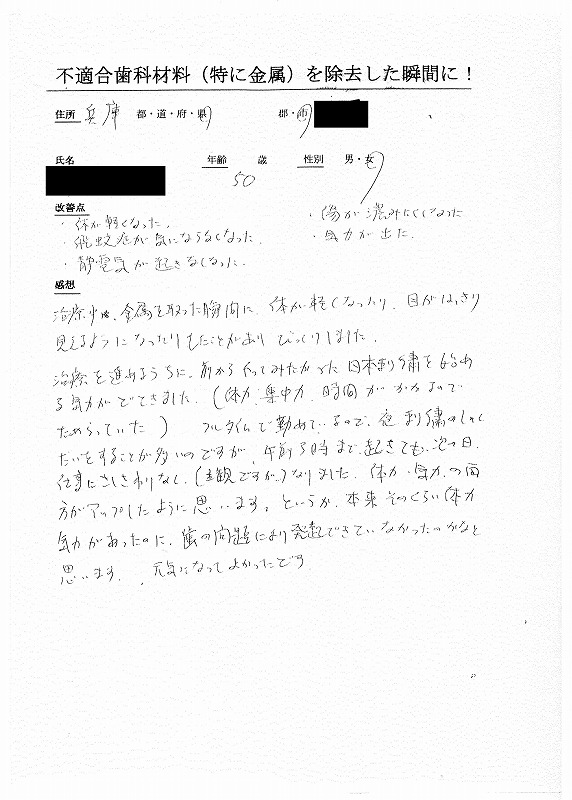 不適合歯科材料（特に金属）を除去した瞬間に！
住所 兵庫 都・道・府・県 郡・市
氏名 年齢 50 歳 性別 男・女
改善点
・体が軽くなった。
・飛蚊症が気にならなくなった。
・静電気が起きなくなった。
・傷が濃みにくくなった
・気力が出た。
感想
治療中は、金属を取った瞬間に、体が軽くなったり、目がはっきり
見えるようになったりしたことがあり びっくりしました。
治療を進めるうちに、前から行ってみたかった日本刺繍を始め
る気力がでてきました。（体力、集中力、時間がかかるので
ためらっていた） フルタイムで勤めているので、夜 刺繍のしゅく
だいをすることが多いのですが、午前3時まで起きても、次の日、
仕事にさしさわりなし（主観ですが）なりました。体力、気力、の両
方がアップしたように思います。というか、本来そのくらい体力
気力があったのに、歯の問題により発起できていなかったのかなと
思います。元気になってよかったです。